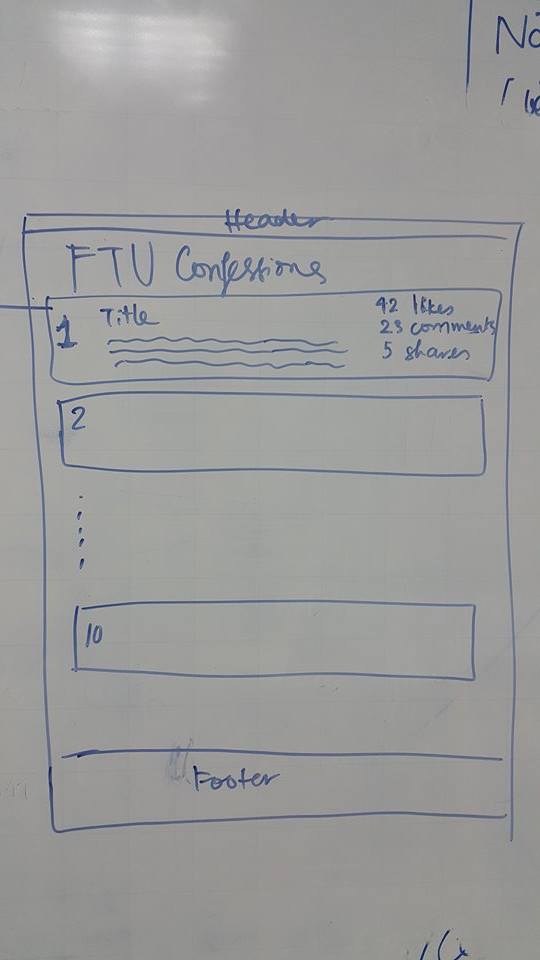 Header
FTU Confessions
1
Title
42 likes
23 comments
5 shares
2
10
Footer